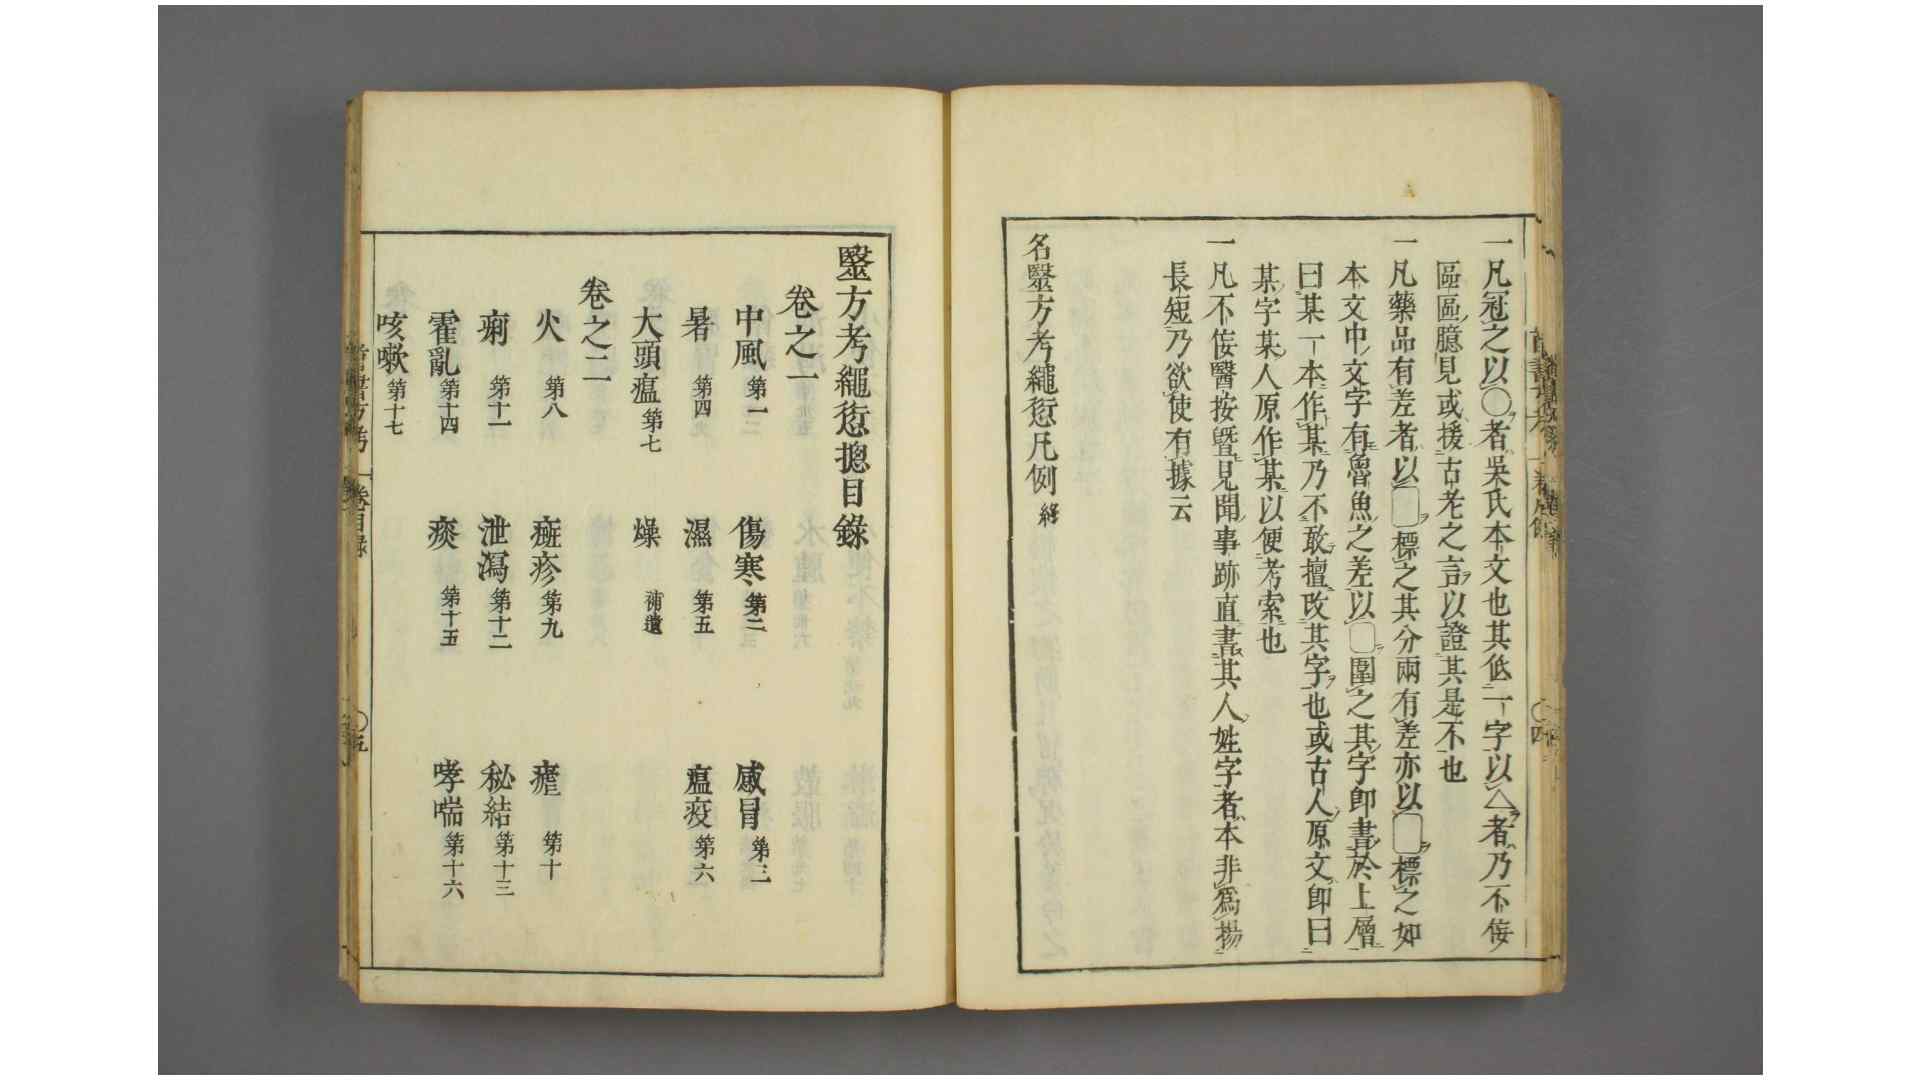 一凡冠之以○者吳氏本文也其低一字以△者乃不侫
區區臆見或援古老之言以證其是不也
一凡藥品有差者以▢標之其分兩有差亦以▢標之如
本文中文字有魯魚之差以▢圍之其字卽書於上層
曰某一本作某乃不敢擅改其字也或古人原文卽曰
某字某人原作某以便考索也
一凡不侫醫按曁見聞事跡直書其人姓字者本非爲揚
長短乃欲使有據云
名毉方考繩愆凡例終
毉方考繩愆摠目錄
卷之一
中風第一 傷寒第二 感冒第三
暑第四 濕第五 瘟疫第六
大頭瘟第七 燥補遺
卷之二
火第八 癍疹第九 瘧第十
痢第十一 泄瀉第十二 秘結第十三
霍亂第十四 痰第十五 哮喘第十六
咳嗽第十七